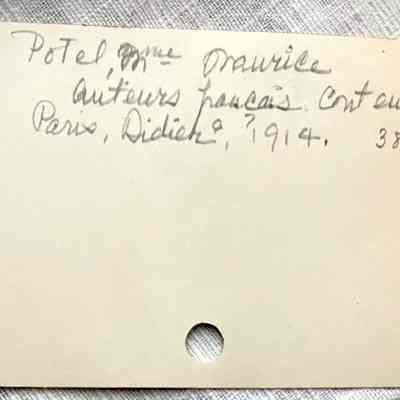 Potel, Mme Maurice
Auteurs français. Conteu
Paris, Didier, ? 1914. 38